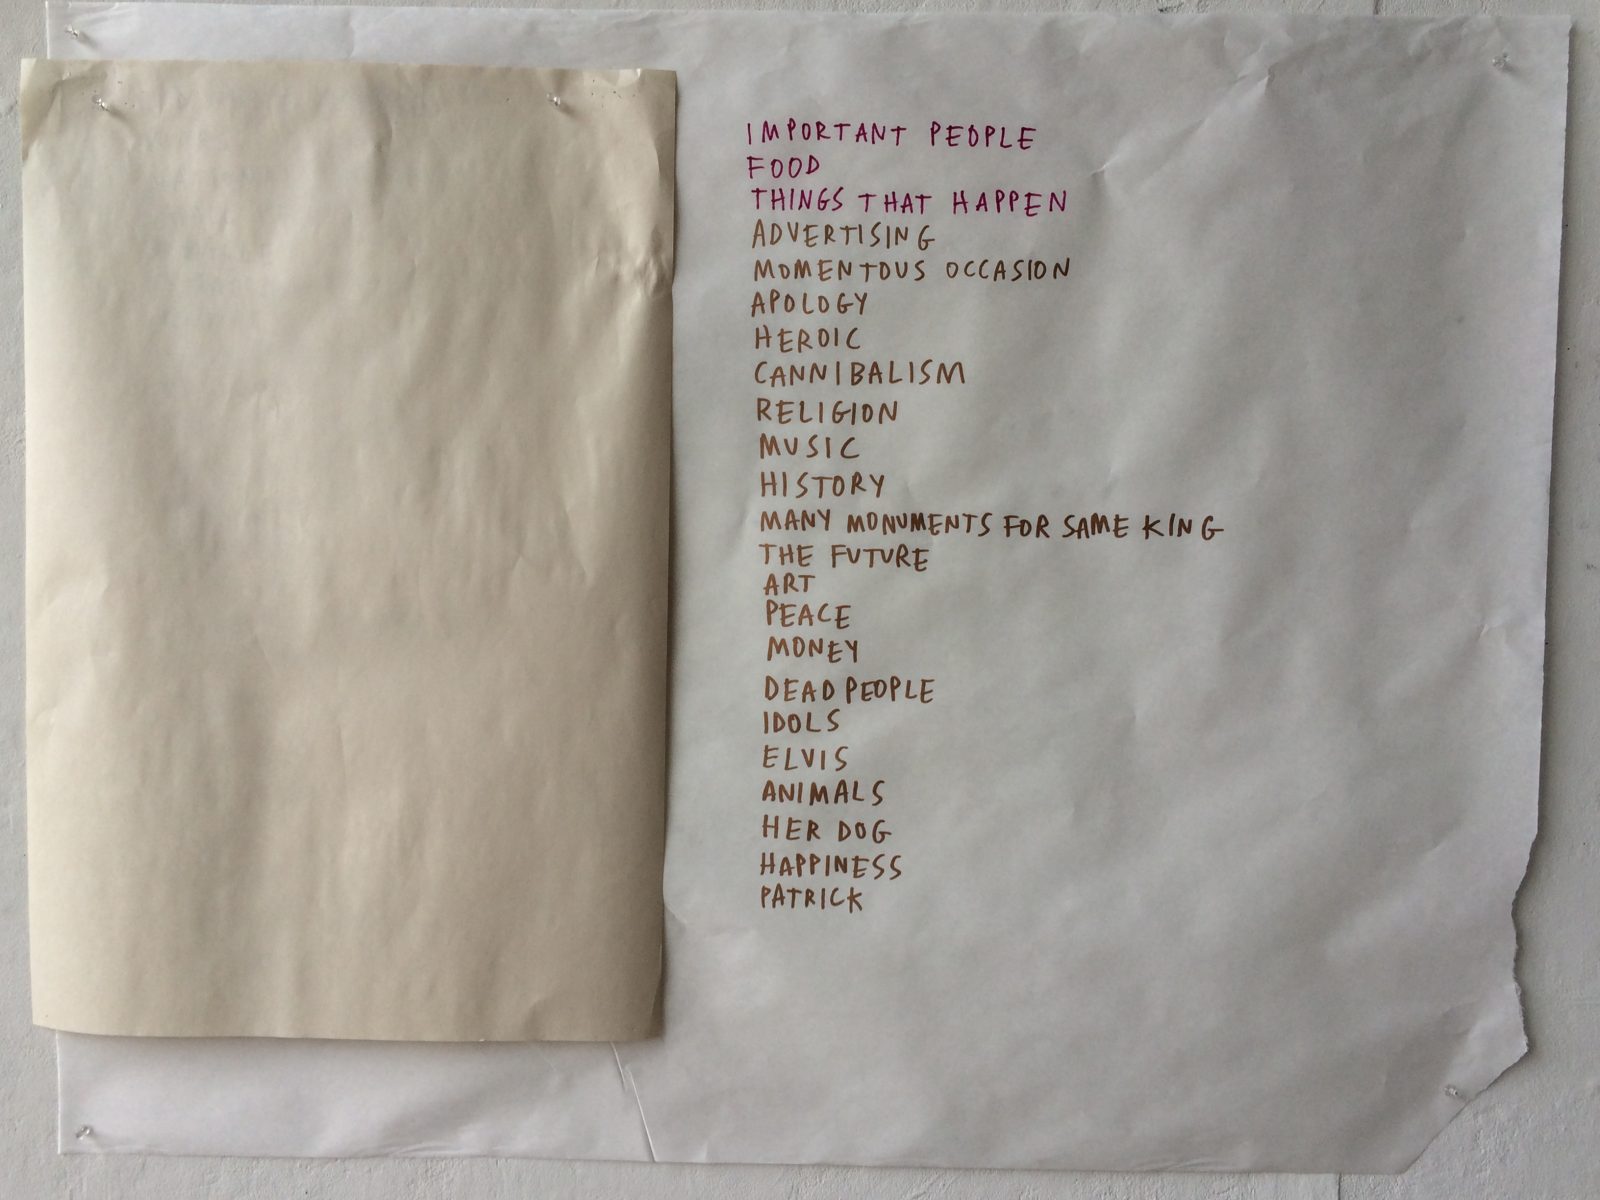 IMPORTANT PEOPLE
FOOD
THINGS THAT HAPPEN
ADVERTISING
MOMENTOUS OCCASION
APOLOGY
HEROIC
CANNIBALISM
RELIGION
MUSIC
HISTORY
MANY MONUMENTS FOR SAME KING
THE FUTURE
ART
PEACE
MONEY
DEAD PEOPLE
IDOLS
ELVIS
ANIMALS
HER DOG
HAPPINESS
PATRICK